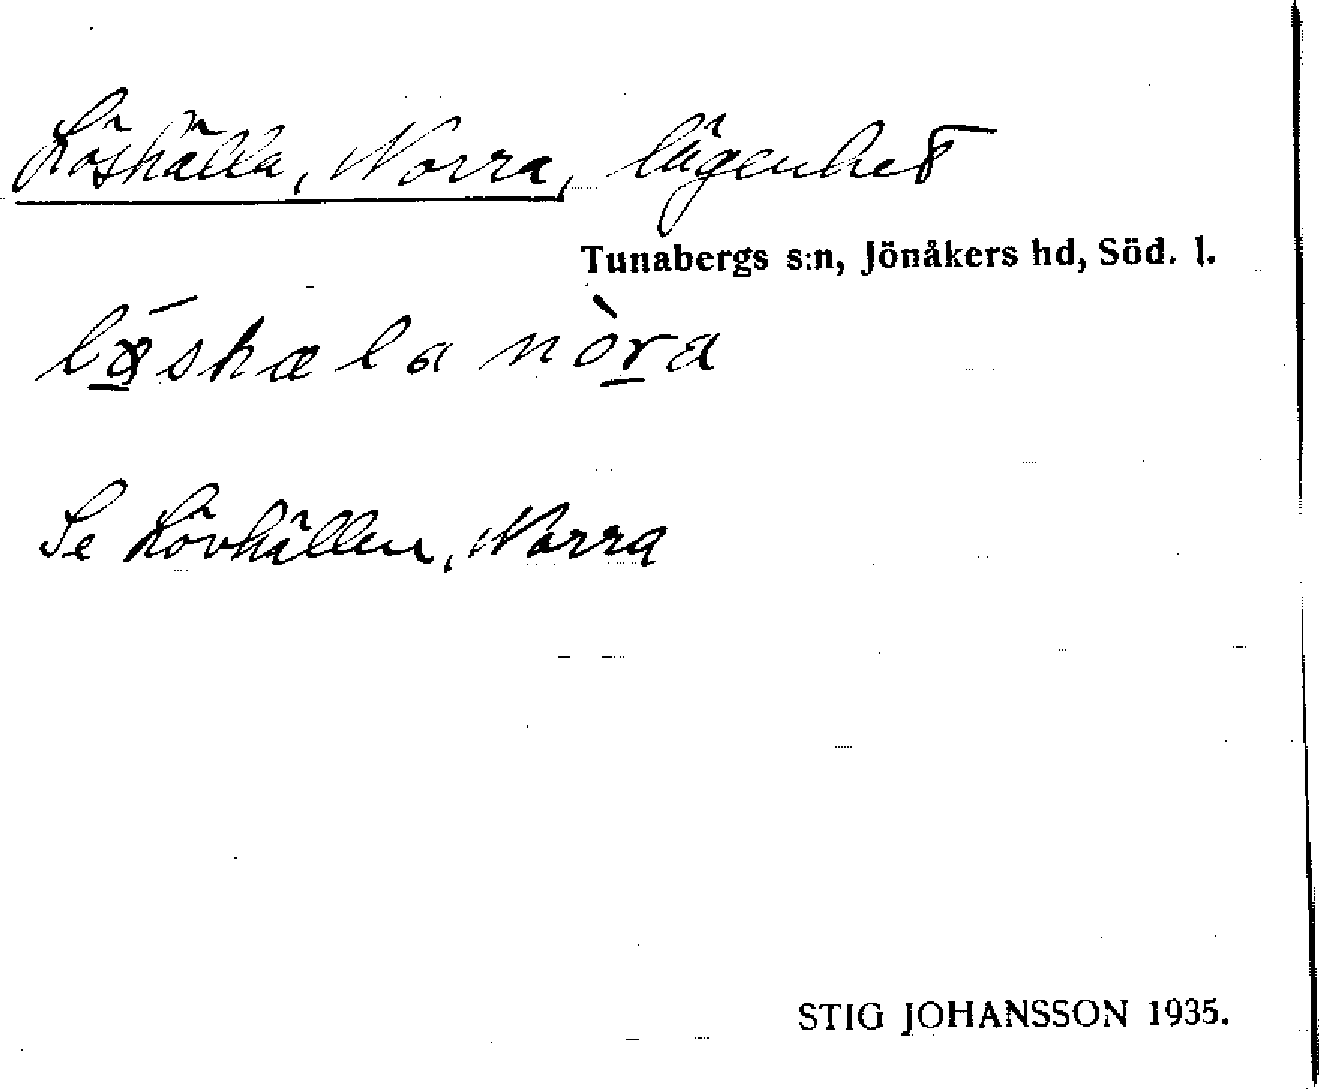 Löshälla, Norra, lägenhet
Tunabergs s:n, Jönåkers hd, Söd. l.
lǿ̲shæla nòr̲a
Se Lövhällen, Norra
STIG JOHANSSON 1935.